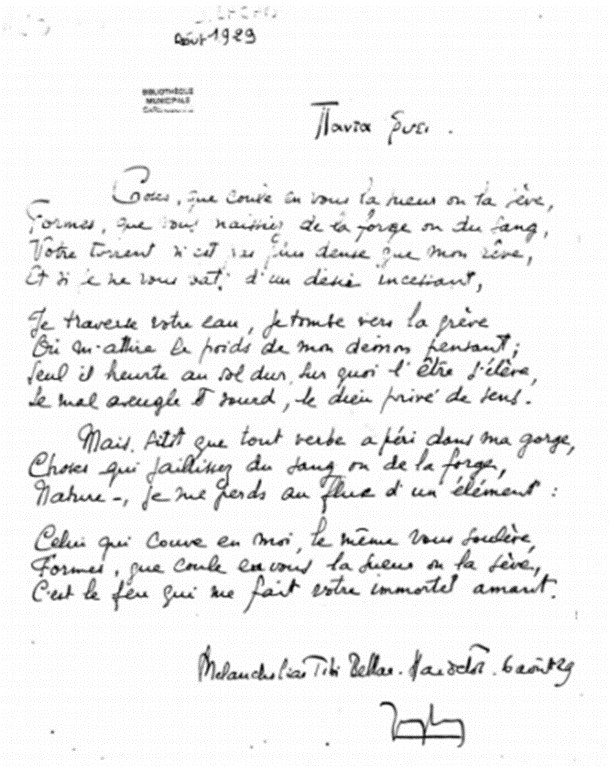 Août 1929
BIBLIOTHÈQUE
MUNICIPALE
Παντα ῥυει .
Choses, que coule en vous la sueur ou la sève,
Formes, que vous naissiez de la forge ou du sang,
Votre torrent n'est pas plus dense que mon rêve,
Et si je ne vous bats d'un désir incessant,
Je traverse votre eau, je tombe vers la grève
Où m'attire le poids de mon démon pensant ;
Seul il heurte au sol dur sur quoi l'être s'élève,
Le mal aveugle et sourd, le dieu privé de sens.
Mais, sitôt que tout verbe a péri dans ma gorge,
Choses qui jaillissez du sang ou de la forge,
Nature –, je me perds au flux d'un élément :
Celui qui couve en moi, le même vous soulève,
Formes, que coule en vous la sueur ou la sève,
C'est le feu qui me fait votre immortel amant.
Melancholiae Tibi Bellae. Hardelot. 6 août 29